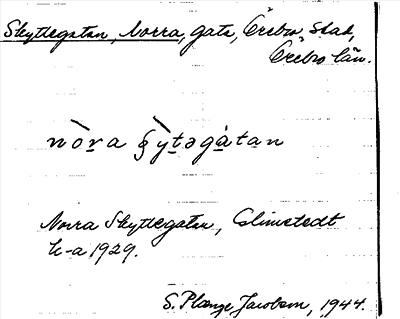 Skyttegatan, Norra, gata, Örebro stad,
Örebro län.
nò̱ra ʂỳt̠əgàtan
Norra Skyttegatan, Elmstedt
k-a 1929.
S. Plænge Jacobson, 1944.